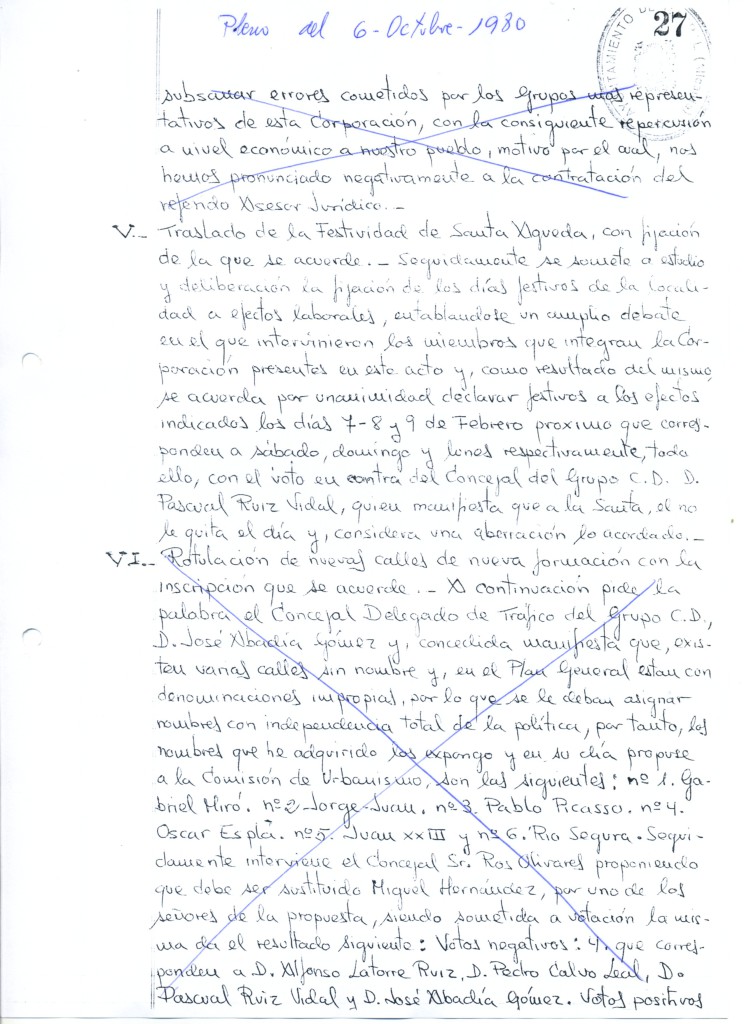 Pleno del 6-Octubre-1980
27
subsanar errores cometidos por los Grupos mas represen-
tativos de esta Corporación, con la consiguiente repercusión
a nivel económico a nuestro pueblo, motivo por el cual, nos
hemos pronunciado negativamente a la contratación del
referido Asesor Jurídico.-
V.- Traslado de la Festividad de Santa Agueda, con fijación
de la que se acuerde.- Seguidamente se somete a estudio
y deliberación la fijación de los días festivos de la locali-
dad a efectos laborales, entablandose un amplio debate
en el que intervinieron los miembros que integran la Cor-
poración presentes en este acto y, como resultado del mismo,
se acuerda por unanimidad declarar festivos a los efectos
indicados los días 7-8 y 9 de Febrero proximo que corres-
ponden a sábado, domingo y lunes respectivamente, todo
ello, con el voto en contra del Concejal del Grupo C.D. D.
Pascual Ruiz Vidal, quien manifiesta que a la Santa, el no
le quita el día y, considera una aberración lo acordado.-
VI.- Rotulación de nuevas calles de nueva formación con la
inscripción que se acuerde.- A continuación pide la
palabra el Concejal Delegado de Tráfico del Grupo C.D.,
D. José Abadía Gómez y, concedida manifiesta que, exis-
ten varias calles sin nombre y, en el Plan General estan con
denominaciones impropias, por lo que se le deban asignar
nombres con independencia total de la política, por tanto, los
nombres que he adquirido los expongo y en su día propuse
a la Comisión de Urbanismo, son las siguientes: nº 1. Ga-
briel Miró. nº 2 Jorge-Juan. nº 3. Pablo Picasso. nº 4.
Oscar Esplá. nº 5. Juan XXIII y nº 6. Rio Segura. Segui-
damente interviene el Concejal Sr. Ros Olivares proponiendo
que debe ser sustituido Miguel Hernández, por uno de los
señores de la propuesta, siendo sometida a votación la mis-
ma da el resultado siguiente: Votos negativos: 4, que corres-
ponden a D. Alfonso Latorre Ruiz, D. Pedro Calvo Leal, D.
Pascual Ruiz Vidal y D. José Abadía Gómez. Votos positivos